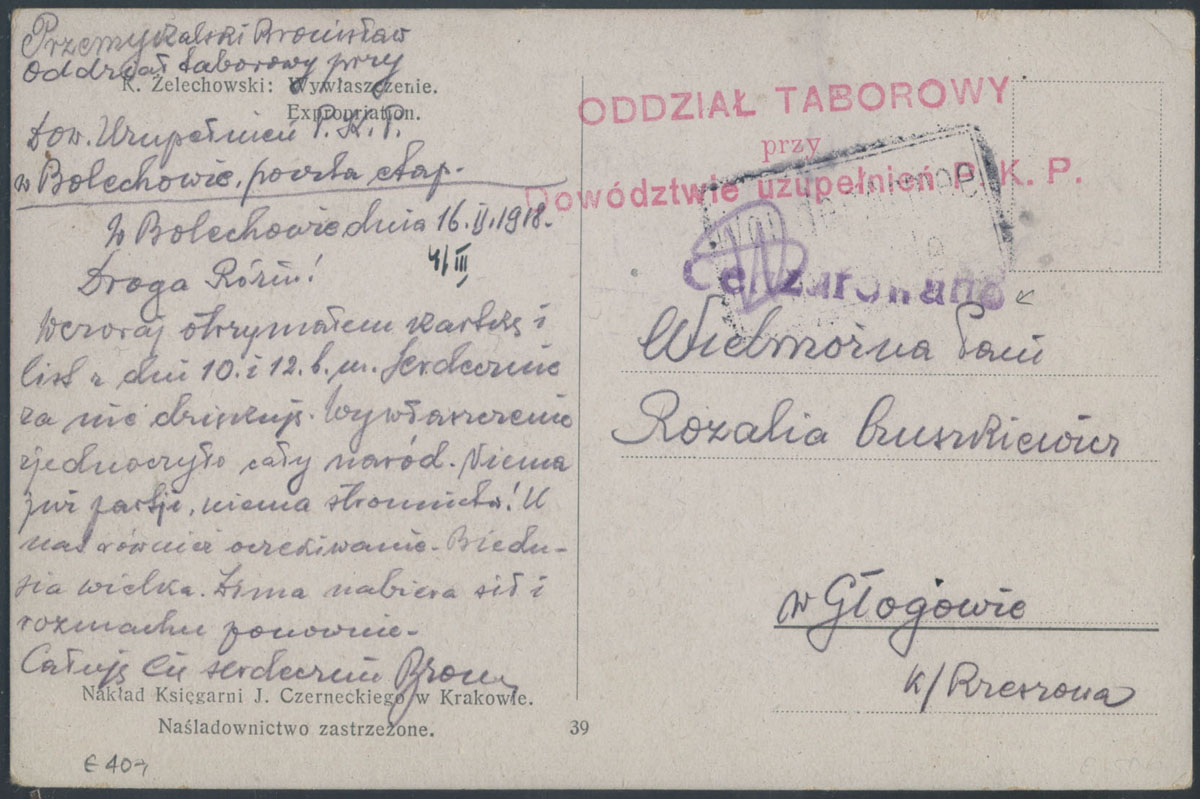 Przemykalski Bronisław
Oddział taborowy przy
K. Żelechowski: Wywłaszczenie.
Expropriation.
Dow. Uzupełnień P. K. P.
w Bolechowie, poczta etap.
W Bolechowie dnia 16.II.1918.
4/III
Droga Róziu!
Wczoraj otrzymałem kartkę i
list z dni 10. i 12. b. m. Serdecznie
za nie dziękuję. Wywłaszczenie
zjednoczyło cały naród. Niema
już partji, niema stronnictw! U
nas również oczekiwanie. Biedu-
sia wielka. Zima nabiera sił i
rozmachu ponownie.
Całuję Cię serdecznie Bron
Nakład Księgarni J. Czerneckiego w Krakowie.
Naśladownictwo zastrzeżone.
39
€ 40
ODDZIAŁ TABOROWY
przy
Dowództwie uzupełnień P. K. P.
Cenzurowano
Wielmożna Pani
Rozalia
w Głogowie
k/ Rzeszowa